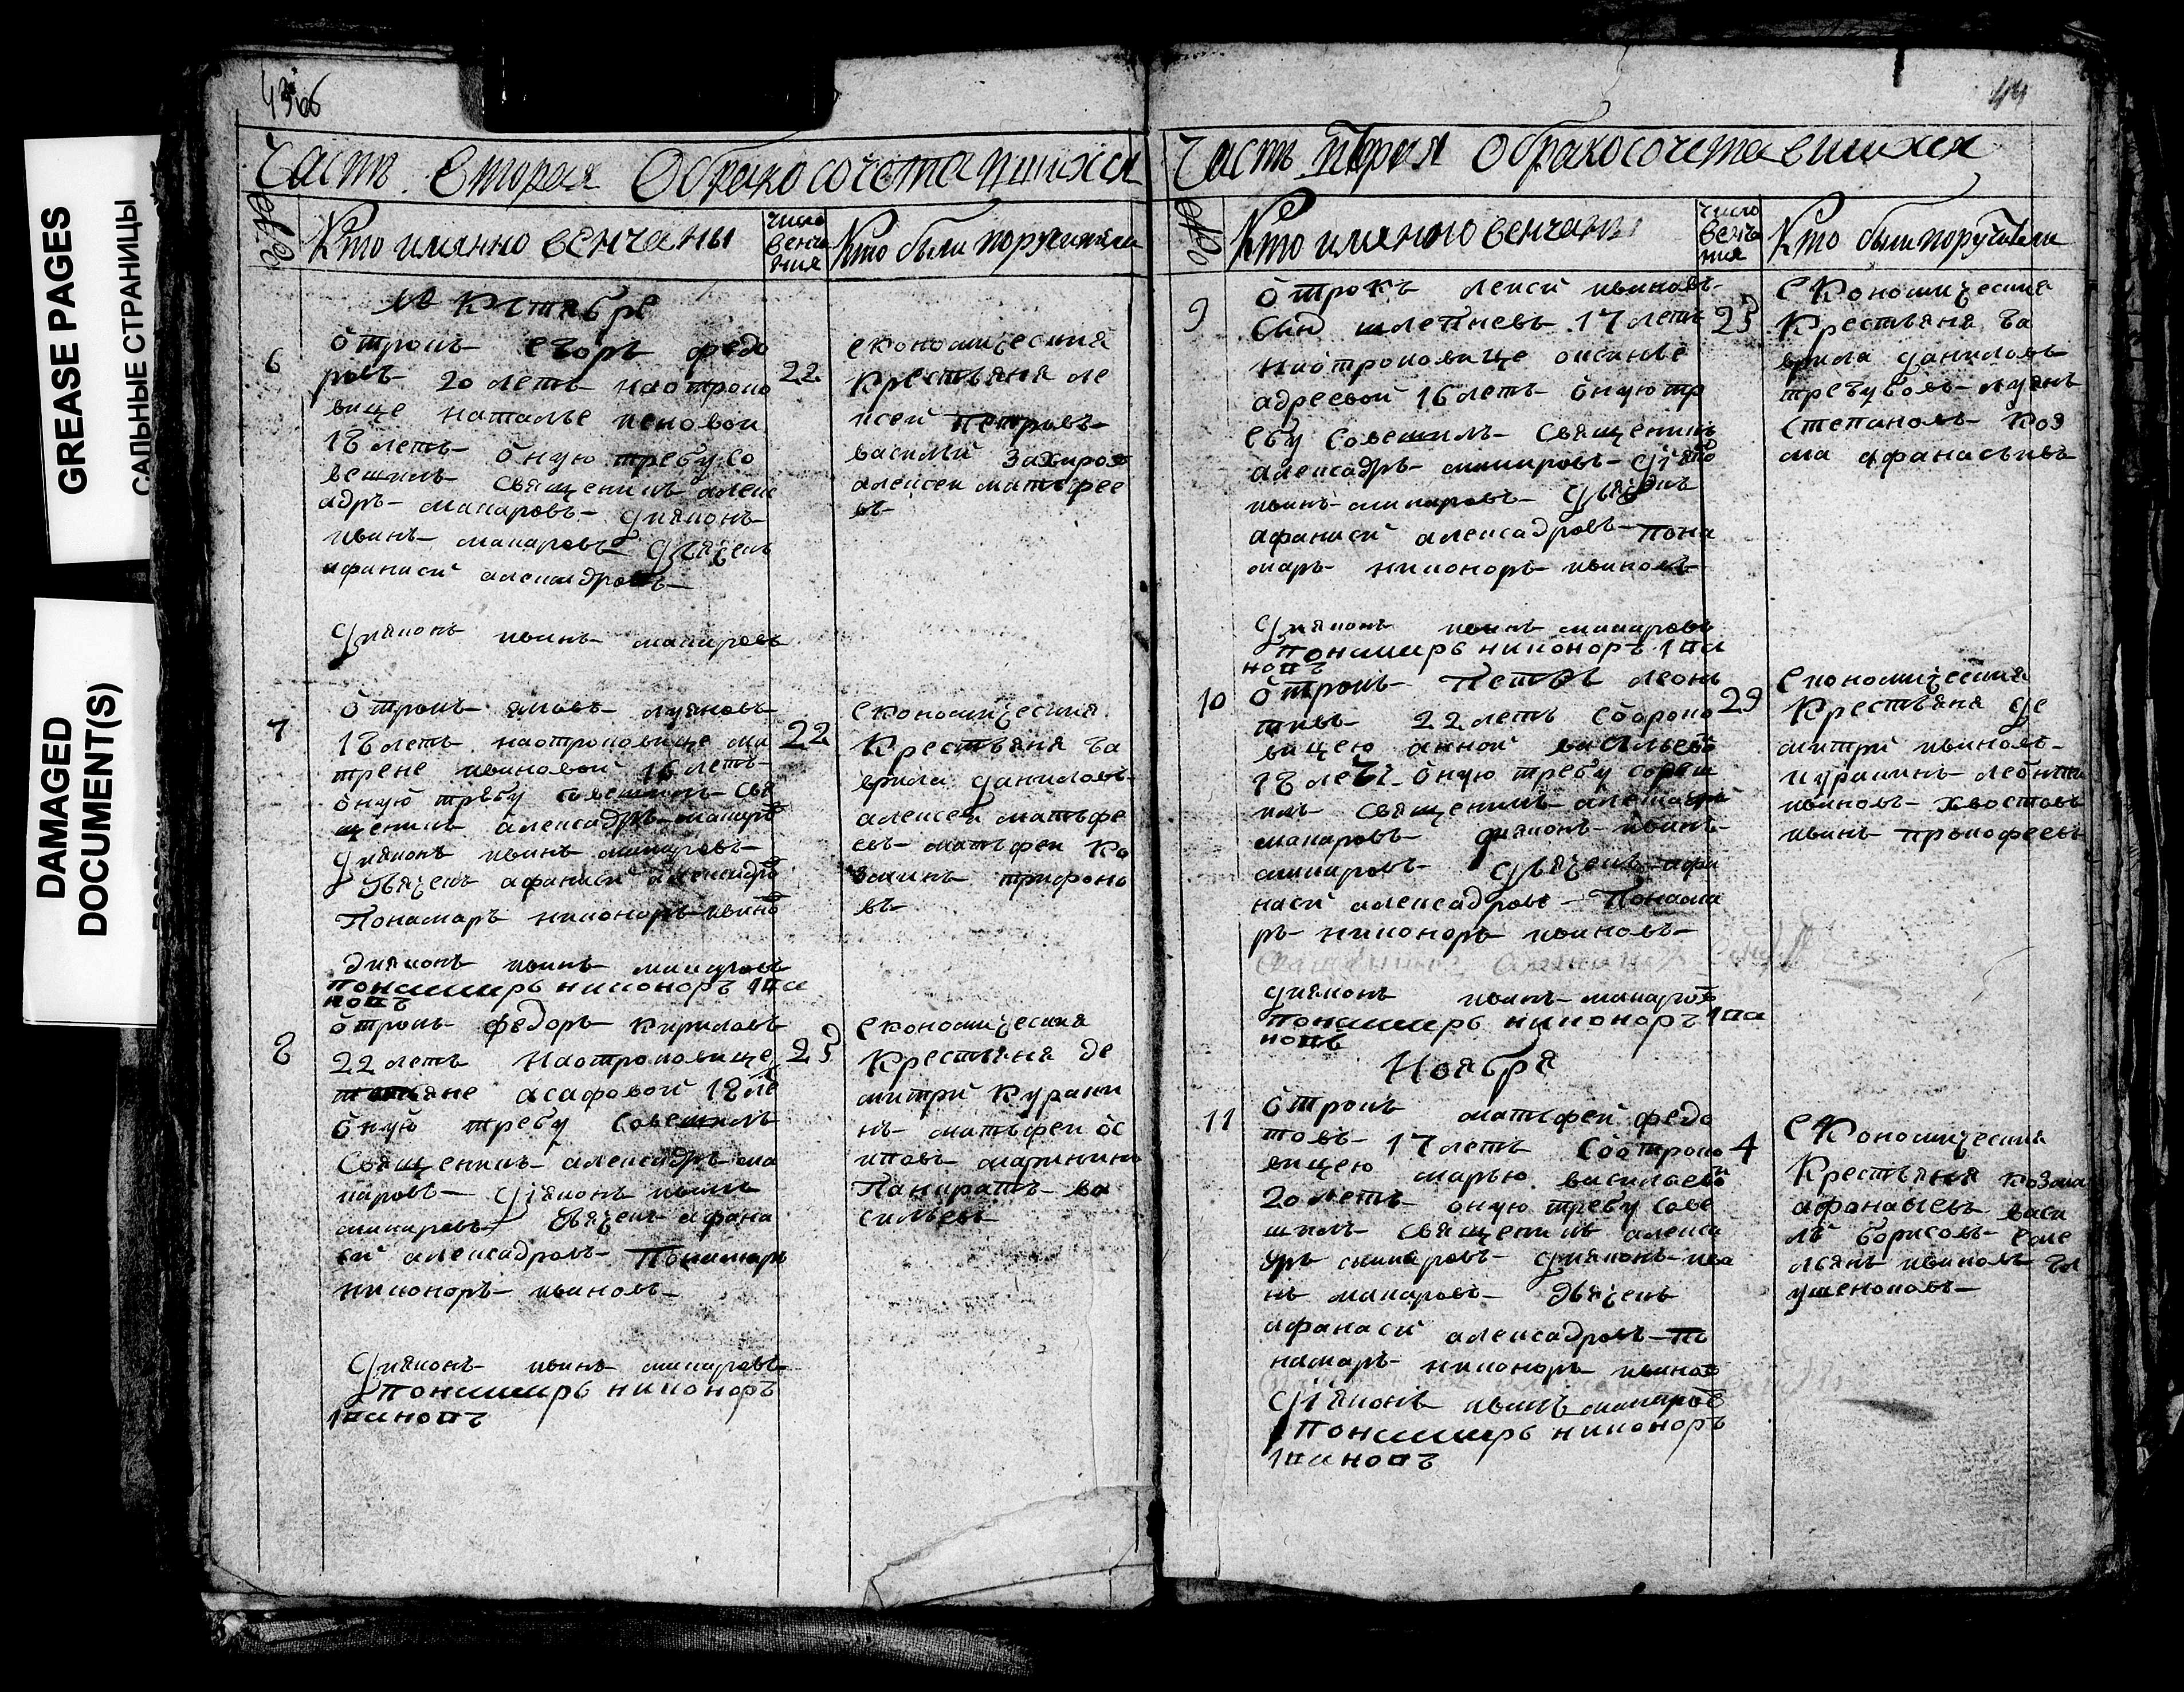 GREASE PAGES
САЛЬНЫЕ СТРАНИЦЫ
DAMAGED
DOCUMENT(S)
44
Часть вторая Обракосочетавшихся
№
Кто имянно венчаны
число
венча
ния
Кто были поручители
6
отрокъ егоръ федо
ровъ 20 летъ наотроко
вице наталье
18 летъ оную требу со
вешилъ священикъ алекс
адръ макаровъ диаконъ
иванъ макаровъ дьячекъ
афанасей александровъ
22
економическия
крестьяня ле
ксей петровъ
василий захаров
алексеи матьфее
въ
диаконъ иванъ макаровъ
7
отрокъ яковъ лукановъ
18 летъ наотроковице ма
трене ивановой 16 летъ
оную требу совешилъ свя
щеникъ алексадръ макаръ
диаконъ иванъ макаровъ
дьячекъ афанасей александръ
Понамаръ никоноръ ивано
22
економическия
крестьяня га
врила даниловъ
алексеи матьфе
евъ матьфеи ко
зминъ трифоно
въ
диаконъ иванъ макаровъ
понамарь никоноръ іва
новъ
8
отрокъ федоръ кириловъ
22 летъ наотроковице
татьяне асафовой 18 ле
оную требу совешилъ
священикъ алексадръ ма
каровъ диаконъ иванъ
макаровъ дьячекъ афана
сий алексадровъ Понамарь
никоноръ ивановъ
25
економическия
крестьяня де
митри куракин
нъ матьфеи ос
иповъ маринин
Панкратъ ва
сильевъ
диаконъ иванъ макаровъ
понамарь никоноръ
івановъ
Часть вторая обракосочетавшихся
№
Кто имянно венчаны
число
венча
ния
Кто были поручители
9
отрокъ лексей ивановъ
сын шлепневъ 17 летъ
наотроковице оксинье
адреевой 16 летъ оную тр
ебу совешилъ священикъ
алексадръ макаровъ диако
иванъ макаровъ дьячекъ
афанасей алексадровъ пона
маръ никоноръ ивановъ
25
економическия
крестьяня га
врила даниловъ
трегубовъ лукян
степановъ коз
ма афанасьивъ
диаконъ иванъ макаровъ
понамарь никоноръ іва
новъ
10
отрокъ Петръ леонь
тивъ 22 летъ сотроко
вицею анной васильево
18 летъ оную требу совеш
илъ священикъ алексадръ
макаровъ диаконъ иванъ
макаровъ дьячекъ афа
насей алексадровъ Понома
ръ никоноръ ивановъ
29
економическия
крестьяня де
митри ивановъ
куракинъ леонти
ивановъ хвостовъ
иванъ прокофеевъ
диаконъ иванъ макаровъ
понамарь никоноръ іва
новъ
Ноября
11
отрокъ матьфей федо
товъ 17 летъ соотроко
вицею марью василаевой
20 летъ оную требу сове
шилъ священикъ алекса
дръ макаровъ диаконъ ива
нъ макаровъ дьячекъ
афанасей алексадровъ по
намаръ никоноръ иванов
4
економическия
крестьяня козма
афонасьевъ васи
лъ борисовъ еме
льянъ ивановъ гл
диаконъ иванъ макаров
понамарь никоноръ
івановъ